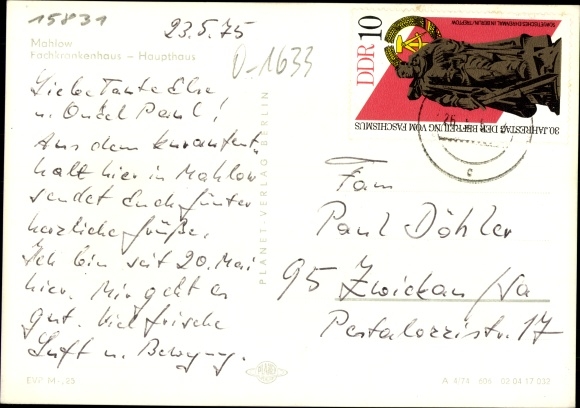 15831
23.5.75
Mahlow
Fachkrankenhaus – Haupthaus
D-1633
Liebe Tante Else
u. Onkel Paul!
Aus dem Kuraufent-
halt hier in Mahlow
sendet Euch Günter
herzliche Grüße.
Ich bin seit 20. Mai
hier. Mir geht es
gut. Viel frische
Luft u. Bewegung.
PLANET-VERLAG BERLIN
DDR 10
SOWJETISCHES EHRENMAL IN BERLIN-TREPTOW
30. JAHRESTAG DER BEFREIUNG VOM FASCHISMUS
Fam
Paul Döhler
95 Zwickau/Sa
Pestalozzistr. 17
PLANET
EVP M -,25
A 4/74 606 02 04 17 032